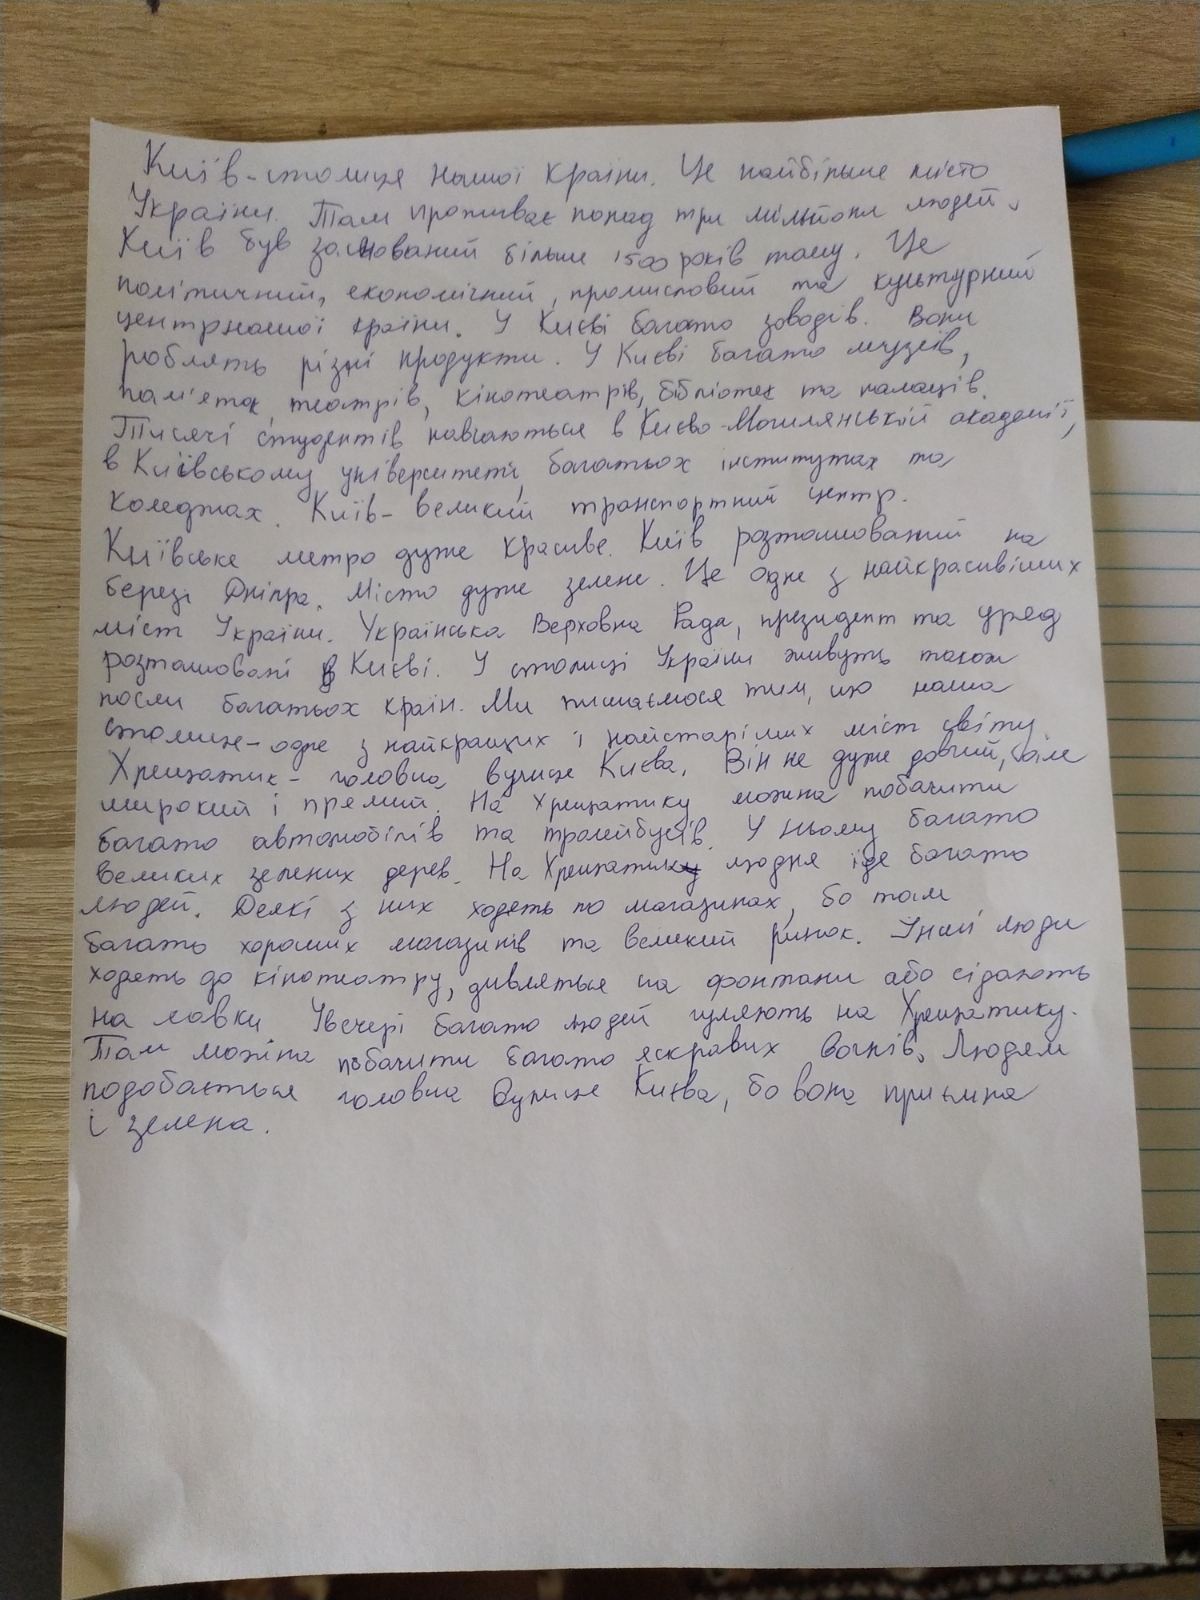 Київ-столиця нашої країни. Це найбільше місто
України. Там проживає понад три мільйони людей.
Київ був заснований більше 1500 років тому. Це
політичний, економічний, промисловий та культурний
центр нашої країни. У Києві багато заводів. Вони
роблять різні продукти. У Києві багато музеїв,
пам'яток театрів, кінотеатрів, бібліотек та палаців.
Тисячі студентів навчаються в Києво-Могилянській академії,
в Київському університеті, багатьох інститутах та
коледжах. Київ- великий транспортний центр.
Київське метро дуже красиве. Київ розташований на
березі Дніпра. Місто дуже зелене. Це одне з найкрасивіших
міст України. Українська Верховна Рада, президент та уряд
розташовані в Києві. У столиці України живуть також
посли багатьох країн. Ми пишаємося тим, що наша
столиця-одне з найкращих і найстаріших міст світу.
Хрещатик- головна вулиця Києва. Він не дуже довгий, але
широкий і прямий. На Хрещатику можна побачити
багато автомобілів та тролейбусів. У ньому багато
великих зелених дерев. На Хрещатику людня іде багато
людей. Деякі з них ходять по магазинах, бо там
багато хороших магазинів та великий ринок. Інші люди
ходять до кінотеатру, дивляться на фонтани або сідають
на лавки Увечері багато людей гуляють на Хрещатику.
Там можна побачити багато яскравих вогнів. Людям
подобається головна вулиця Києва, бо вона приємна
і зелена.